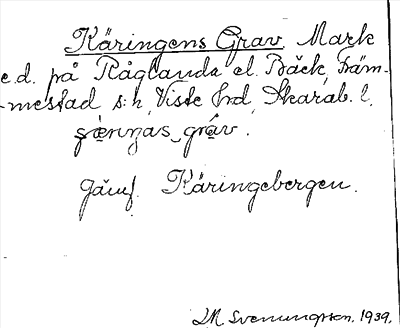 Käringens Grav Mark
e.d. på Råglanda el. Bäck, Främ-
-mestad s:n, Viste hrd, Skarab. l.
grav.
Jämf. Käringebergen.
I.M. Svenungsson. 1939.